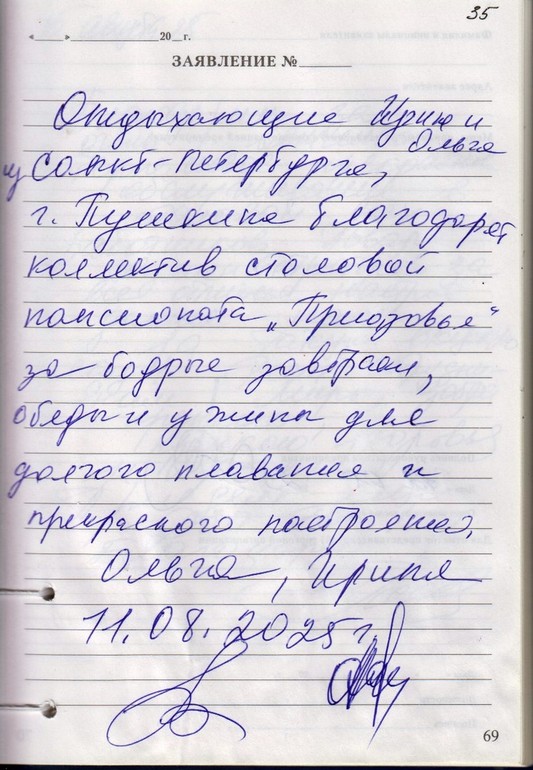 35
«____» ____________20__г.
ЗАЯВЛЕНИЕ №______
Отдыхающие Ирина и
Ольга
из Санкт-Петербурга,
г. Пушкина благодарят
коллектив столовой
пансионата „Приазовье“
за бодрые завтраки,
обеды и ужины для
долгого плавания и
прекрасного настроения.
Ольга, Ирина
11.08.2025г.
69